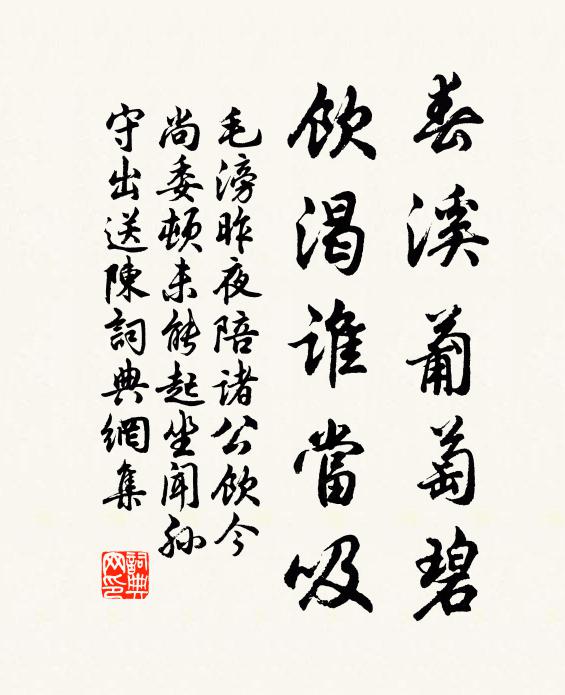 春溪葡萄碧
飲渴誰當吸
毛滂昨夜陪諸公飲今
尚委頓未能起坐聞孫
守出送陳詞典網集
詞典
网印